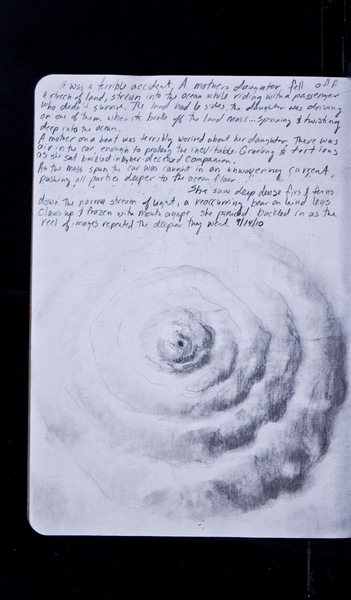 It was a terrible accident, A mothers daughter fell off
a stretch of land, strewn into the ocean while riding with a passenger
who didn't survive. The land had 6 sides, the daughter was driving
on one of them when it broke off the land mass— Spinning & twisting
deep into the ocean.
A mother on a boat was terribly worried about her daughter. There was
air in the car, enough to prolong the inevitable. Grueling &
as she sat buckled in by her deceased companion.
As the mass spun the car was caught in an unwavering current,
pushing all parties deeper to the ocean floor.
She saw deep dense firs & ferns
down the narrow stream of light, a reoccurring bear on hind legs
Claws up & frozen with mouth agape. She panicked, buckled in as the
reel of images repeated the deeper they went. 9/14/10